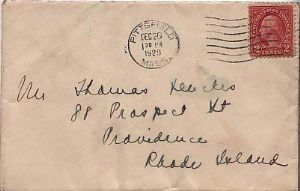 PITTSFIELD
DEC 26
1928
MASS.
2
Mr Thomas
88 Prospect St
Providence
Rhode Island